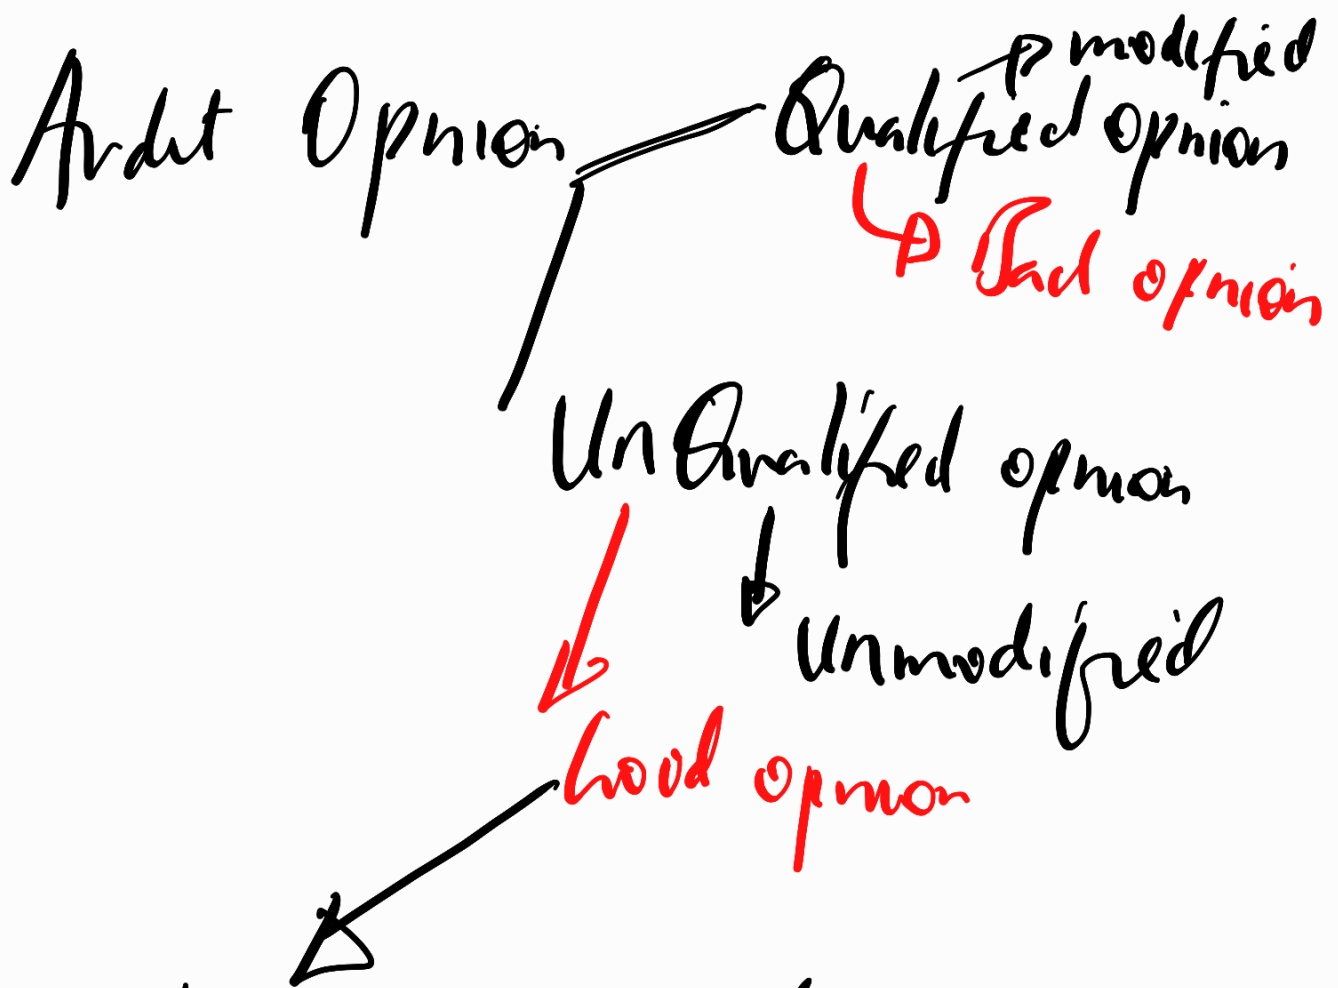 modified
Audit Opinion Qualified opinion
Bad opinion
UnQualified opinion
Unmodified
Good opinion